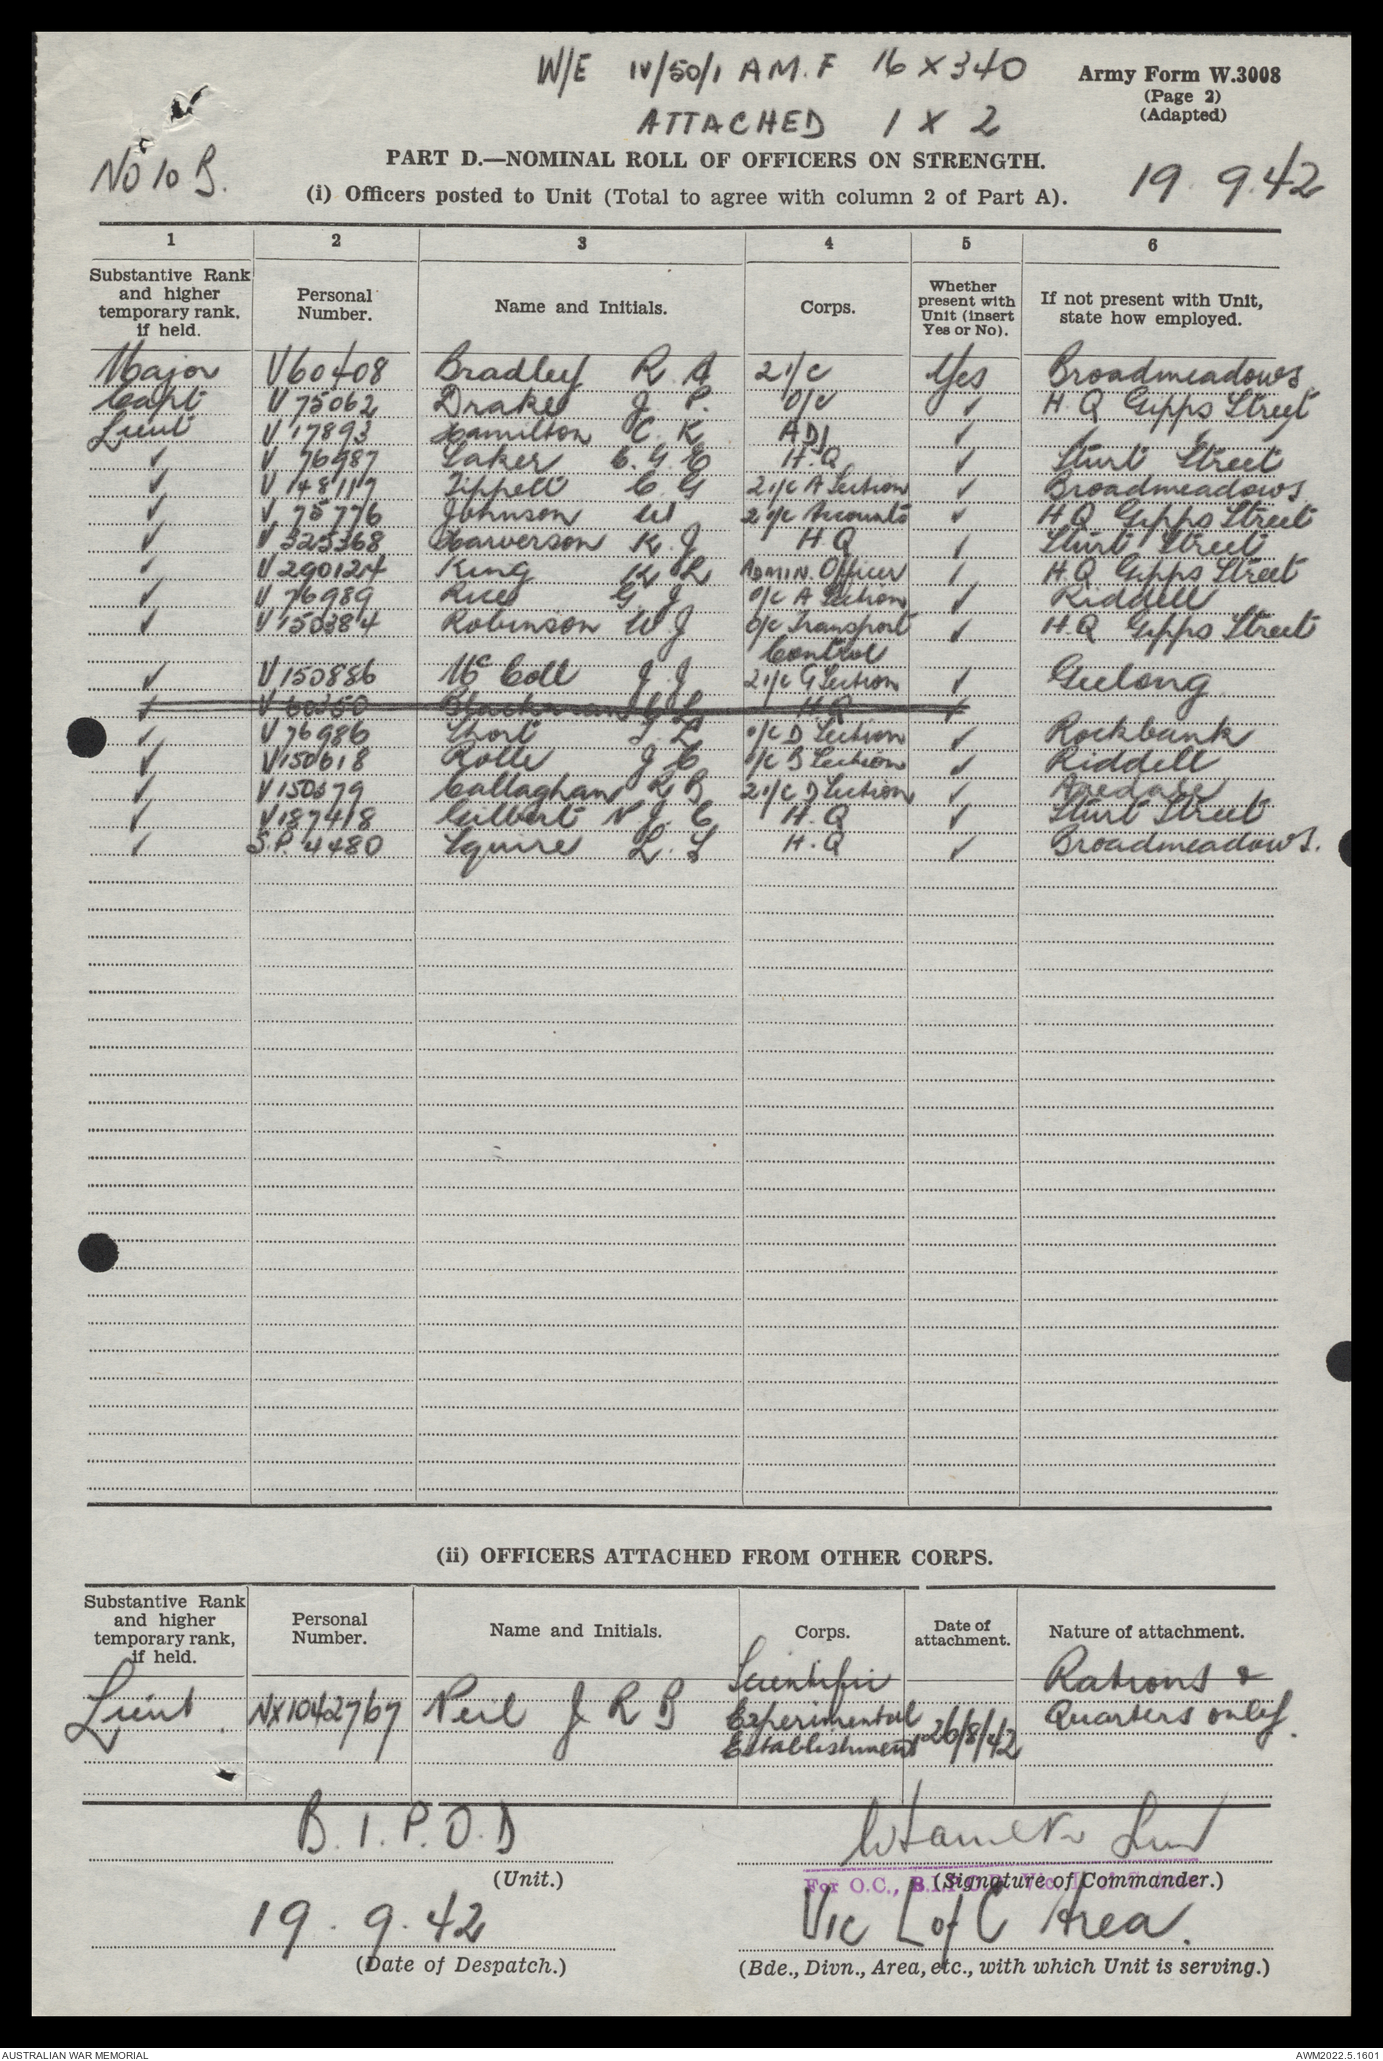 W/E IV/50/1 A.M.F 16 X 340
ATTACHED 1 X 2
Army Form W.3008
(Page 2)
(Adapted)
No 10 B.
19.9.42
PART D.—NOMINAL ROLL OF OFFICERS ON STRENGTH.
(i) Officers posted to Unit (Total to agree with column 2 of Part A).
1 2 3 4 5 6
Substantive Rank and higher temporary rank, if held. Personal Number. Name and Initials. Corps. Whether present with Unit (insert Yes or No). If not present with Unit, state how employed.
Major V60408 Bradley R A 2 i/c Yes Broadmeadows
Capt V 75062 Drake J. P. O/C ✓ H.Q Gipps Street
Lieut V 17893 Hamilton C. K ADJ ✓ ✓ ✓
✓ V 76987 Laker C. G. E H.Q ✓ Sturt Street
✓ V 148117 Tippett C G 2 i/c A Section ✓ Broadmeadows
✓ V 75776 Johnson W 2 i/c Accounts ✓ H.Q Gipps Street
✓ V 325368 Harverson K. J H Q ✓ Sturt Street
✓ V290124 King K L ADMIN. Officer ✓ H.Q Gipps Street
✓ V 76989 Rice G J o/c A Section ✓ Riddell
✓ V150384 Robinson W J o/c Transport Control ✓ H.Q Gipps Street
✓ V150886 McColl J. J 2 i/c G Section ✓ Geelong
✓ V 60350 Blackman L H Q ✓
✓ V 76986 Short L o/c D Section ✓ Rockbank
✓ V150618 Rolle J C o/c B Section ✓ Riddell
✓ V150379 Callaghan R B 2 i/c D Section ✓
✓ V187418 Gilbert N J. C H.Q ✓ Sturt Street
✓ S.P. 4480 Squire L. H.Q ✓ Broadmeadows.
(ii) OFFICERS ATTACHED FROM OTHER CORPS.
Substantive Rank and higher temporary rank, if held. Personal Number. Name and Initials. Corps. Date of attachment. Nature of attachment.
Lieut NX1042767 Neil J R B Scientific Experimental Establishment 26/8/42 Rations & Quarters only.
B.I.P.O.D
(Unit.)
(Signature of Commander.)
For O.C.,
19.9.42
(Date of Despatch.)
Vic L of C Area.
(Bde., Divn., Area, etc., with which Unit is serving.)
AUSTRALIAN WAR MEMORIAL
AWM2022.5.1601